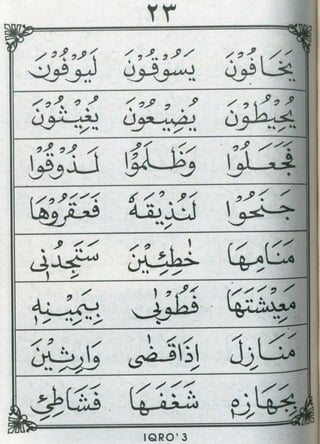 ٢٣
يَخَافُوْنَ يَسُوْقُوْنَ لَيُوْفُوْنَ
يُحِيْطُوْنَ يُضِيْعُوْنَ يُغِيْثُوْنَ
فَجَعَلُوْا وَظَلَمُوْا لَذُوْقُوْا
جَنَحُوْا لَنُذِيْقَهُ فَعَقَرُوْهَا
مَنَامِهَا خٰطِئِيْنَ سَتَجِدُنِيْ
مَعِيْشَتَهَا فَطُوْبٰى بِيَمِيْنِهٖ
مَنَازِلَ اِذَاقَضٰى وَارِثِيْنَ
بِجَهَازِهٖ شَغَفَهَا فَشَاطِئِ
IQRO' 3